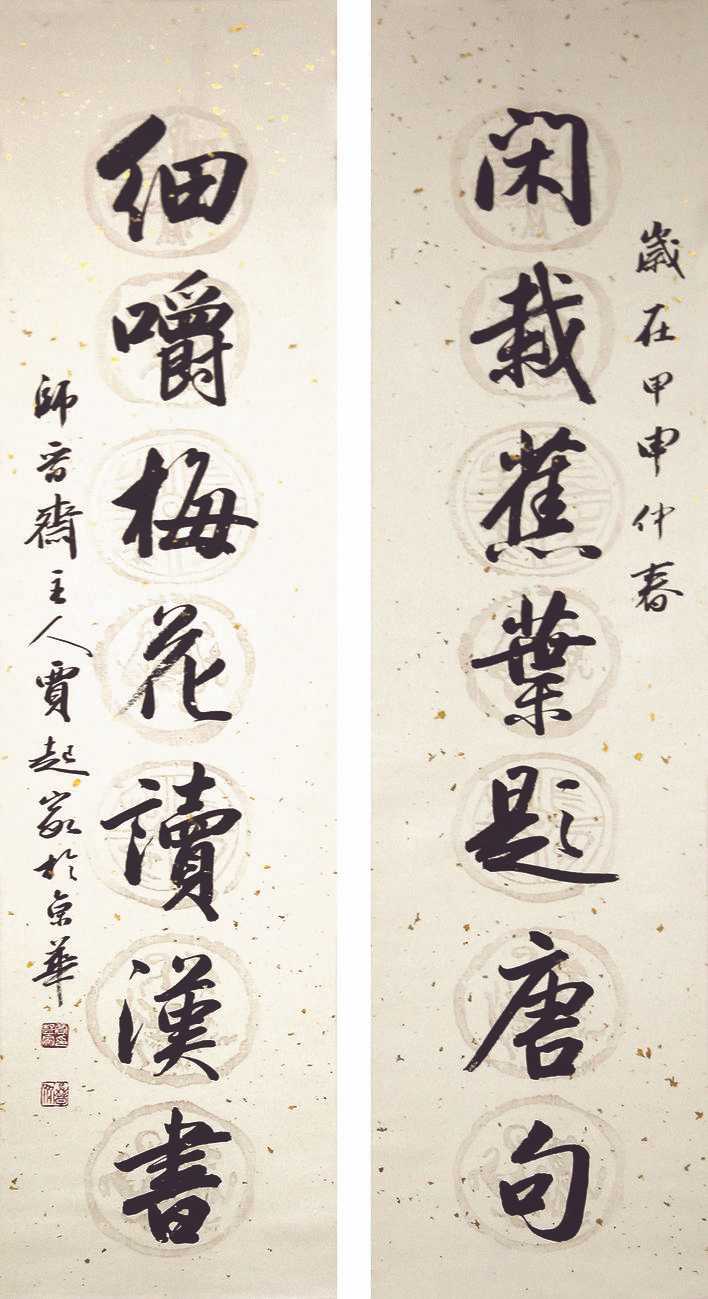 歲在甲申仲春
閑栽蕉葉題唐句
細嚼梅花讀漢書
師晋齋主人賈起家於京華